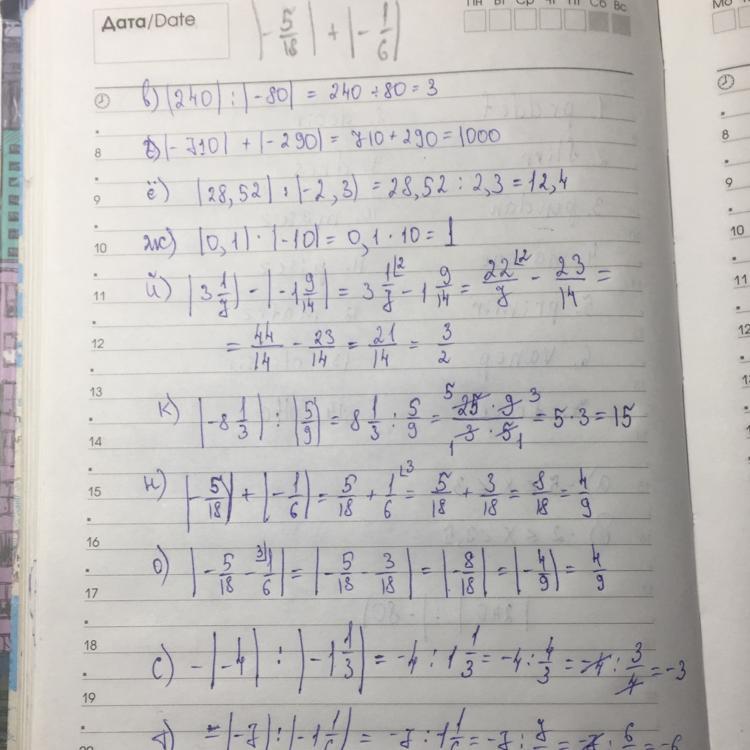 Дата/Date
|-5/18| + |-1/6|
Пн Вт Ср Чт Пт Сб Вс
в) |240| : |-80| = 240 ÷ 80 = 3
|-710| + |-290| = 710 + 290 = 1000
8
ё) |28,52| : |-2,3| = 28,52 : 2,3 = 12,4
9
ж) |0,1| · |-10| = 0,1 · 10 = 1
10
й) |3 1/7| - |-1 9/14| = 3 1/7 ⌊2 - 1 9/14 = 22/7 ⌊2 - 23/14 =
11
= 44/14 - 23/14 = 21/14 = 3/2
12
13
к) |-8 1/3| : |5/9| = 8 1/3 : 5/9 = 5 25 · 9 3 / 1 3 · 5 1 = 5 · 3 = 15
14
н) |-5/18| + |-1/6| = 5/18 + 1/6 ⌊3 = 5/18 + 3/18 = 8/18 = 4/9
15
16
о) |-5/18 - 3⌋ 1/6| = |-5/18 - 3/18| = |-8/18| = |-4/9| = 4/9
17
18
с) -|-4| : |-1 1/3| = -4 : 1 1/3 = -4 : 4/3 = -4 : 3/4 = -3
19
т) = |-7| : |-1 1/6| = -7 : 1 1/6 = -7 : 7
Мо
8
9
10
11
12